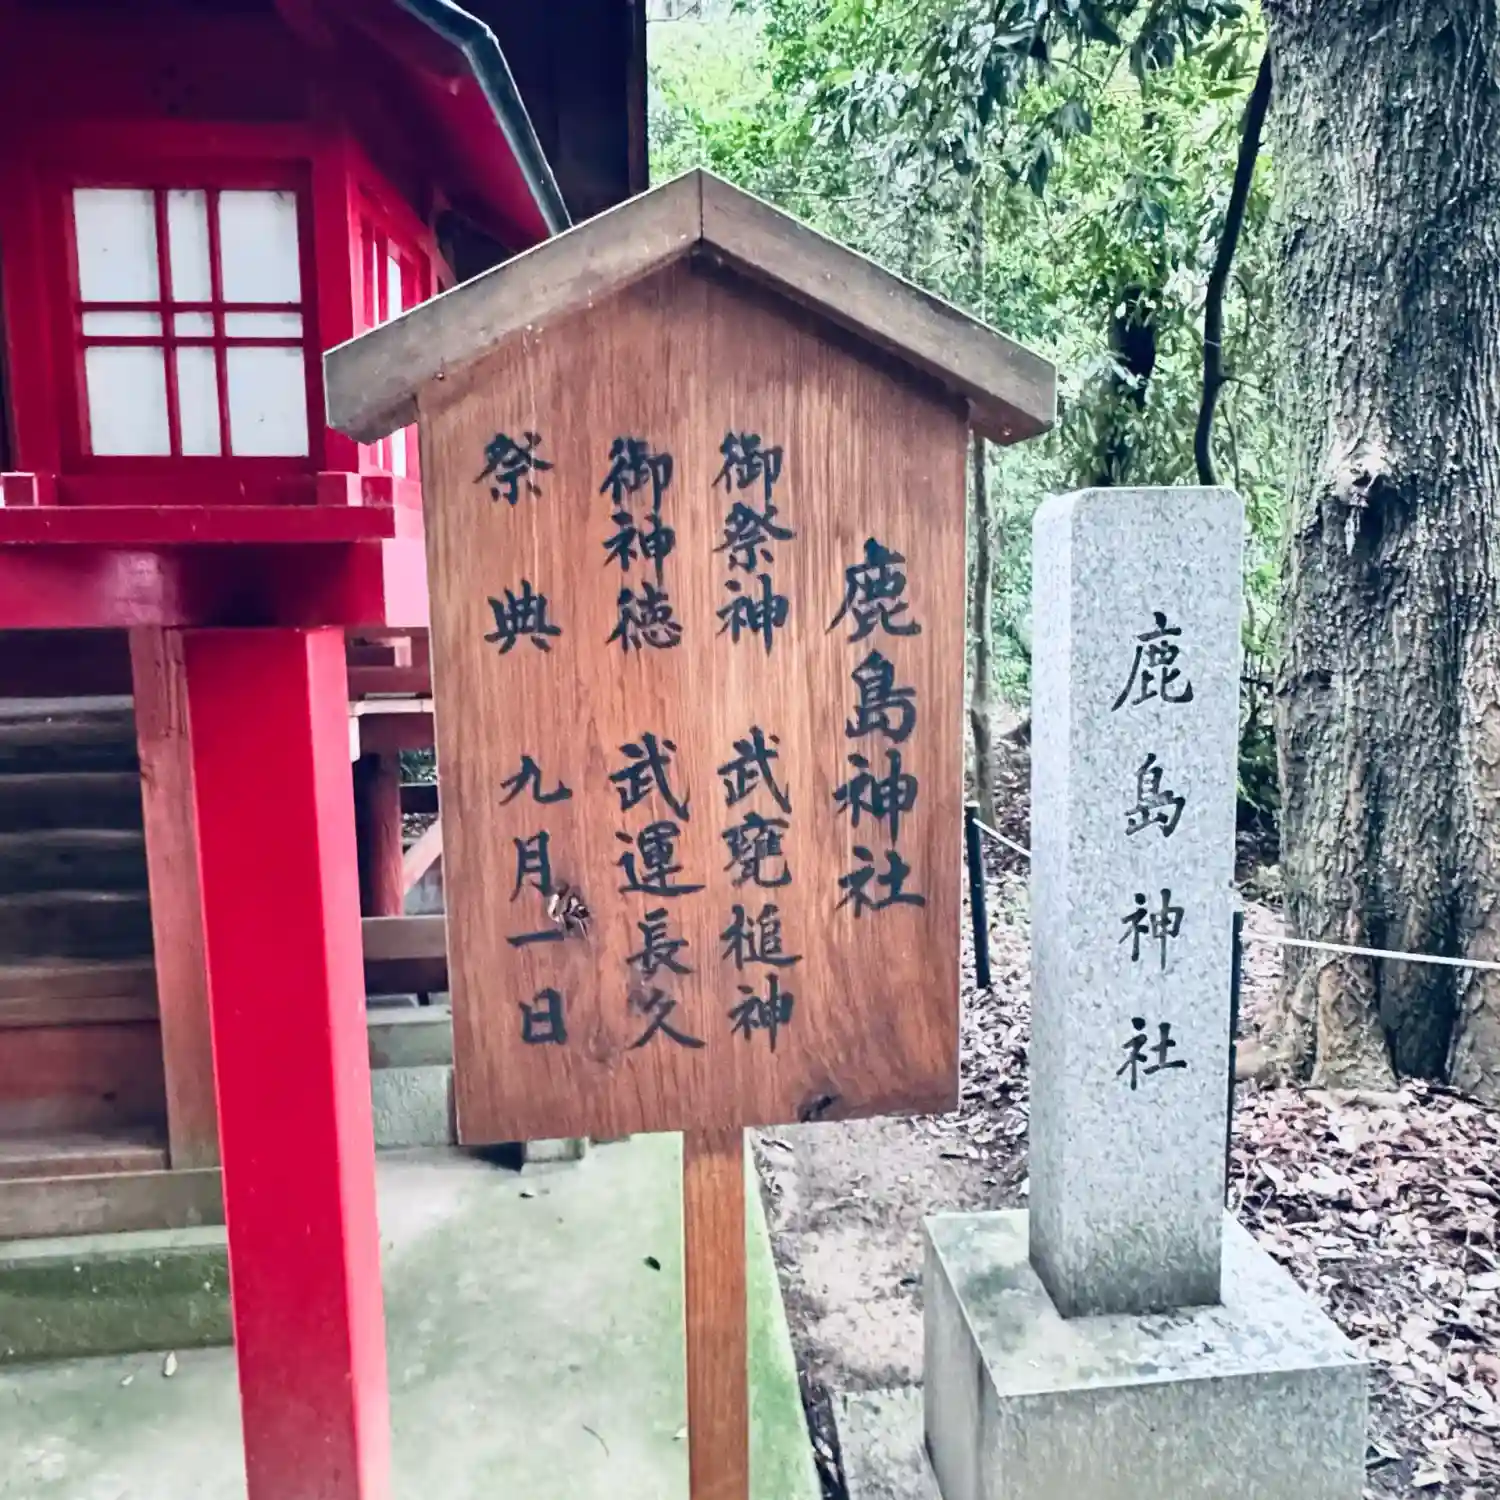 鹿島神社
御祭神 武甕槌神
御神徳 武運長久
祭典 九月一日
鹿島神社